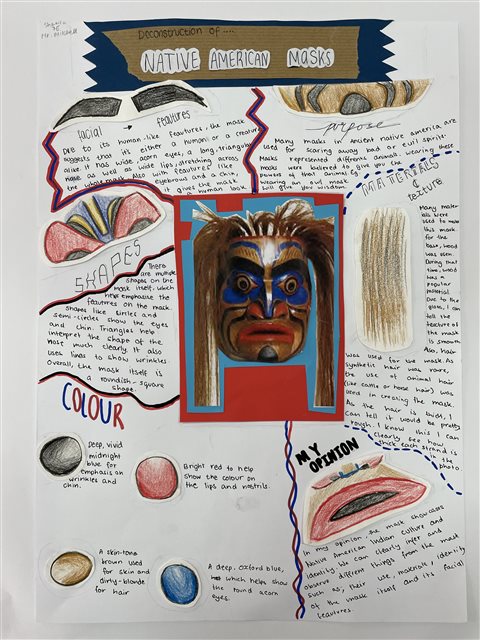 9E
Mr. Mikhail
Deconstruction of ....
NATIVE AMERICAN MASKS
facial → features
Due to its human-like feautures, the mask
suggests that it's either a humon or a creature
alike. It has wide, acorn eyes, a long, triangular
nose as well as wide lips, stretching across
the whole mask. Also with features like
eyebrows and a chin,
it gives the mask
a human look.
purpose
Many masks in Ancient native america are
used for scaring away bad or evil spirits.
Masks represented different animals. wearing these
masks were believed to give you the
powers of that animal. Eg
wearing an owl mask
will give you wisdom.
MATERIALS
&
texture
Many mater-
ials were
used to make
this mask.
For the
base, wood
was used.
During that
time, wood
was a
popular
material.
Due to the
gloss, I can
tell the
texture of
the mask
is smooth.
Also, hair
was used for the mask. As
synthetic hair was rare,
the use of animal hair
(like cattle or horse hair) was
used in creating the mask.
As the hair is thick, I
can tell it would be pretty
rough. I know this I can
clearly see how
thick each strand is
photo
SHAPES
There
are multiple
shapes on the
mask itself, which
help emphasise the
features on the mask.
shapes like circles and
semi-circles show the eyes
and chin. Triangles help
intepret the shape of the
nose much clearly. It also
uses lines to show wrinkles.
Overall, the mask itself is
a roundish-square
shape.
COLOUR
Deep, vivid
midnight
blue for
emphasis on
wrinkles and
chin.
Bright red to help
show the colour on
the lips and nostrils.
A skin-tone
brown used
for skin and
dirty-blonde
for hair
A deep, Oxford blue,
which helps show
the round acorn
eyes.
MY
OPINION
In my opinion, the mask showcases
Native American Indian culture and
identity. We can clearly infer and
observe different things from the mask
such as, their use, materials, identity
of the mask itself and its facial
feautures.